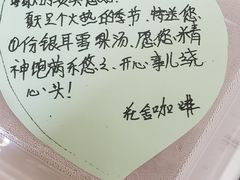 又是个大热的季节，特送您
①份银耳雪梨汤，愿您精
神饱满乐悠之、开心事儿绕
心头！
舍咖啡